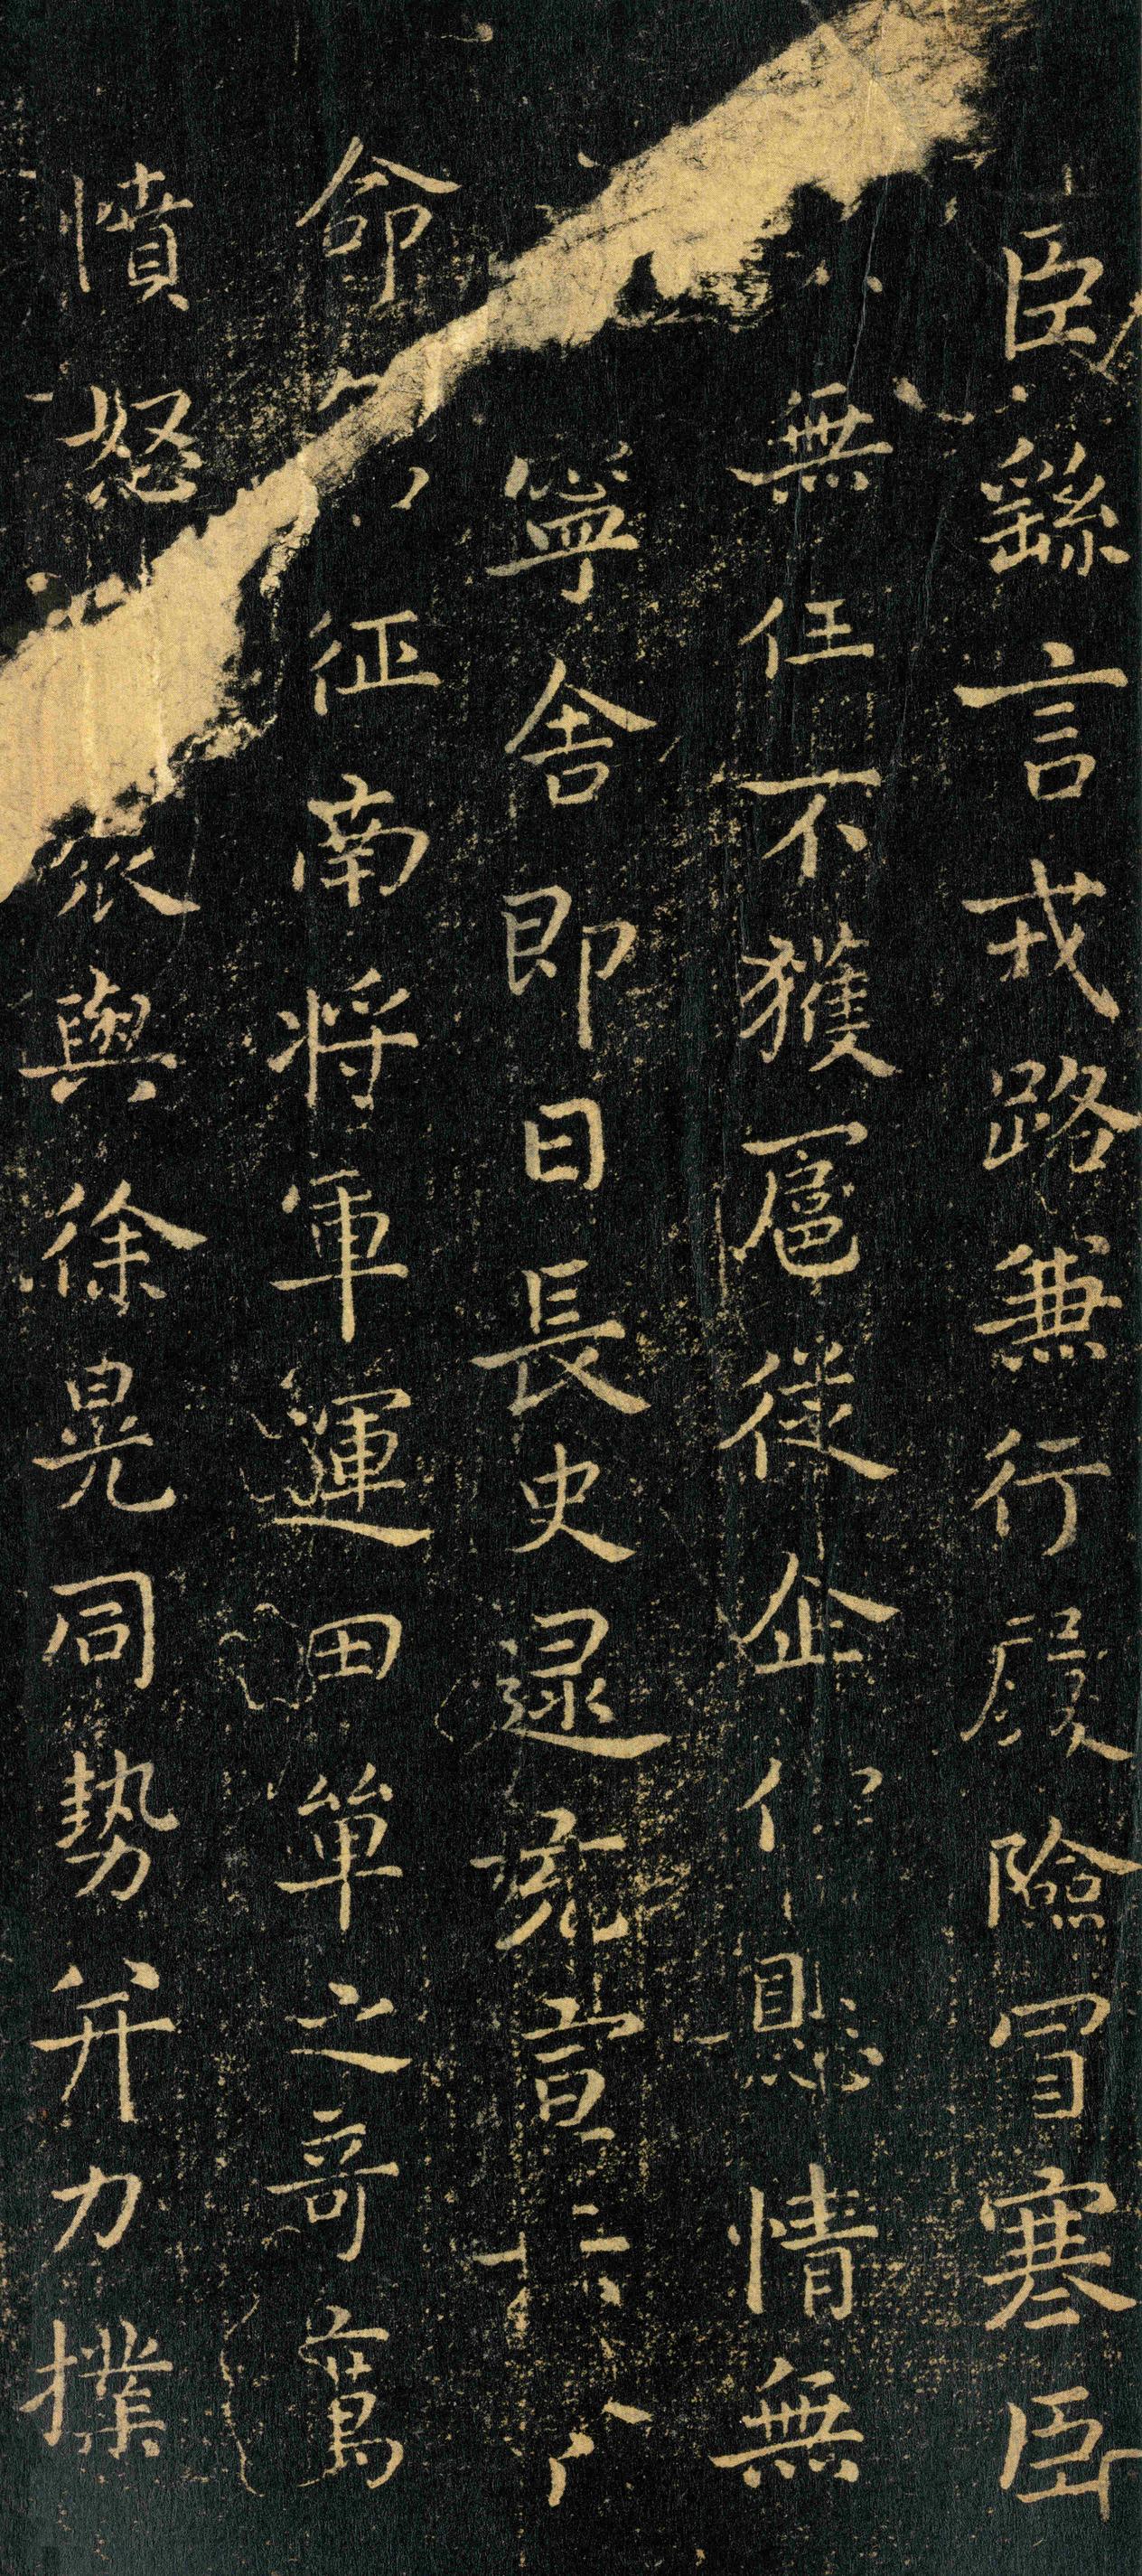 臣繇言戎路兼行履險冒寒臣
無任不獲扈從企佇懸情無
寧舍即日長史逮充宣
命征南将軍運田單之奇厲
憤怒眾與徐晃同勢并力撲